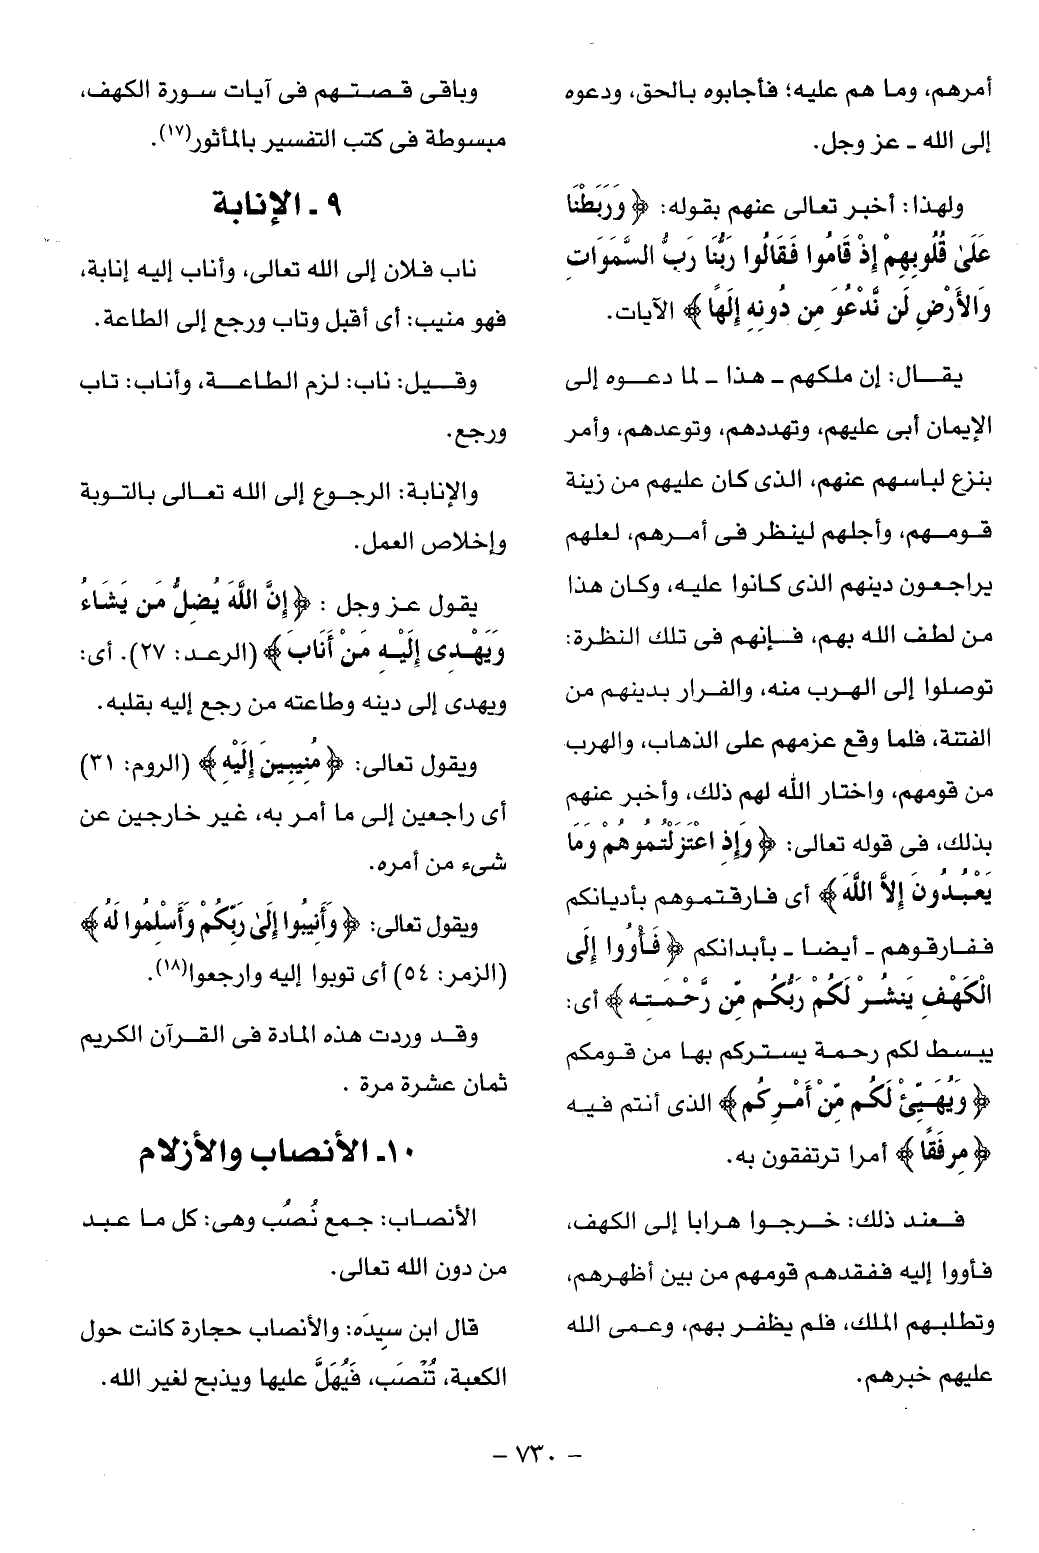 أمرهم، وما هم عليه؛ فأجابوه بالحق، ودعوه
إلى الله ـ عز وجل.
ولهذا: أخبر تعالى عنهم بقوله: ﴿ وَرَبَطْنَا
عَلَىٰ قُلُوبِهِمْ إِذْ قَامُوا فَقَالُوا رَبُّنَا رَبُّ السَّمَوَاتِ
وَالأَرْضِ لَن نَّدْعُوَ مِن دُونِهِ إِلَهًا ﴾ الآيات.
يقـــال: إن ملكهم ـ هذا ـ لما دعــوه إلى
الإيمان أبى عليهم، وتهددهم، وتوعدهم، وأمر
بنزع لباسهم عنهم، الذى كان عليهم من زينة
قومهم، وأجلهم لينظر فى أمرهم، لعلهم
يراجعون دينهم الذى كانوا عليه، وكان هذا
من لطف الله بهم، فإنهم فى تلك النظرة:
توصلوا إلى الهرب منه، والفرار بدينهم من
الفتنة، فلما وقع عزمهم على الذهاب، والهرب
من قومهم، واختار الله لهم ذلك، وأخبر عنهم
بذلك، فى قوله تعالى: ﴿ وَإِذِ اعْتَزَلْتُمُوهُمْ وَمَا
يَعْبُدُونَ إِلاَّ اللَّهَ ﴾ أى فارقتموهم بأديانكم
ففارقوهم ـ أيضا ـ بأبدانكم ﴿ فَأْوُوا إِلَى
الْكَهْفِ يَنشُرْ لَكُمْ رَبُّكُم مِّن رَّحْمَتِهِ ﴾ أى:
يبسط لكم رحمة يستركم بها من قومكم
﴿ وَيُهَيِّئْ لَكُم مِّنْ أَمْرِكُم ﴾ الذى أنتم فيه
﴿ مِرفَقًا ﴾ أمرا ترتفقون به.
فعند ذلك: خرجوا هرابا إلى الكهف،
فأووا إليه ففقدهم قومهم من بين أظهرهم،
وتطلبهم الملك، فلم يظفر بهم، وعمى الله
عليهم خبرهم.
وباقى قصتهم فى آيات سورة الكهف،
مبسوطة فى كتب التفسير بالمأثور(١٧).
٩ ـ الإنابة
ناب فلان إلى الله تعالى، وأناب إليه إنابة،
فهو منيب: أى أقبل وتاب ورجع إلى الطاعة.
وقيل: ناب: لزم الطاعة، وأناب: تاب
ورجع.
والإنابة: الرجوع إلى الله تعالى بالتوبة
وإخلاص العمل.
يقول عز وجل : ﴿ إِنَّ اللَّهَ يُضِلُّ مَن يَشَاءُ
وَيَهْدِى إِلَيْهِ مَنْ أَنَابَ ﴾ (الرعد: ٢٧). أى:
ويهدى إلى دينه وطاعته من رجع إليه بقلبه.
ويقول تعالى: ﴿ مُنِيبِينَ إِلَيْهِ ﴾ (الروم: ٣١)
أى راجعين إلى ما أمر به، غير خارجين عن
شىء من أمره.
ويقول تعالى: ﴿ وَأَنِيبُوا إِلَىٰ رَبِّكُمْ وَأَسْلِمُوا لَهُ ﴾
(الزمر: ٥٤) أى توبوا إليه وارجعوا(١٨).
وقد وردت هذه المادة فى القرآن الكريم
ثمان عشرة مرة .
١٠ـ الأنصاب والأزلام
الأنصاب: جمع نُصُب وهى: كل ما عبد
من دون الله تعالى.
قال ابن سيدَه: والأنصاب حجارة كانت حول
الكعبة، تُنْصَب، فَيُهَلَّ عليها ويذبح لغير الله.
– ٧٣٠ –